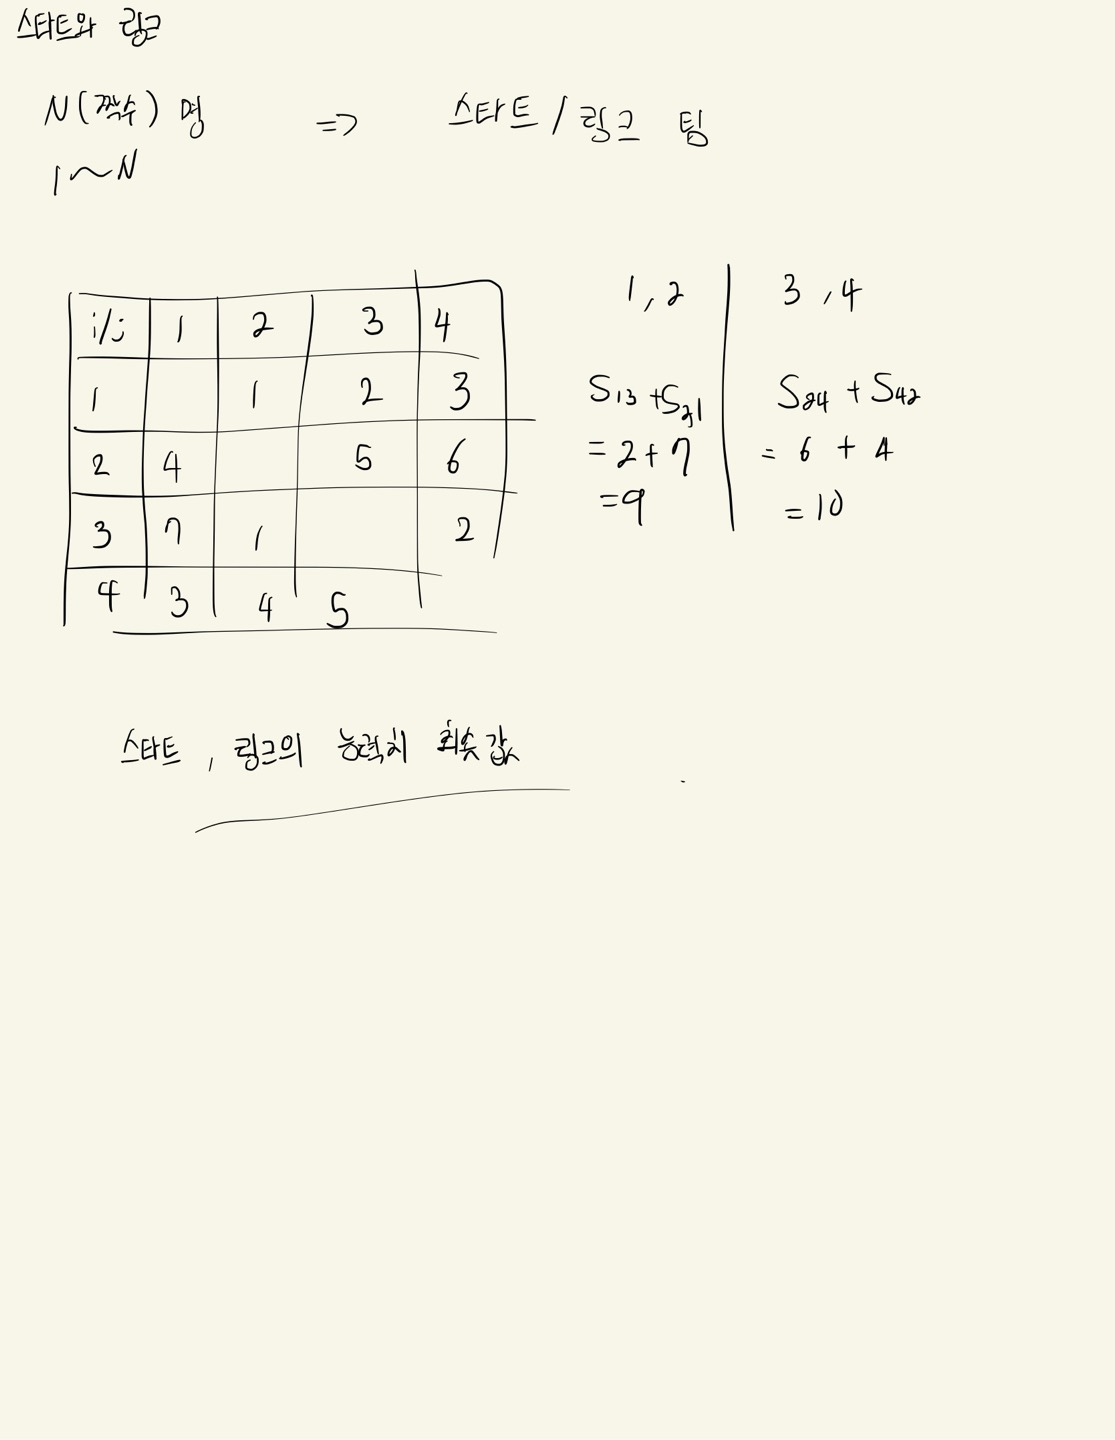 스타트와 링크
N(짝수) 명 => 스타트 / 링크 팀
1~N
i/j 1 2 3 4
1 1 2 3
2 4 5 6
3 7 1 2
4 3 4 5
1, 2 | 3, 4
S13 + S31 | S24 + S42
= 2 + 7 | = 6 + 4
= 9 | = 10
스타트, 링크의 능력치 최솟값